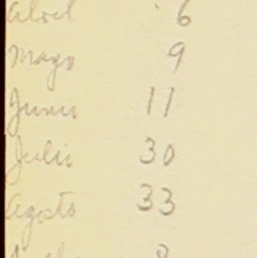 Abril 6
Mayo 9
Junio 11
Julio 30
Agosto 33